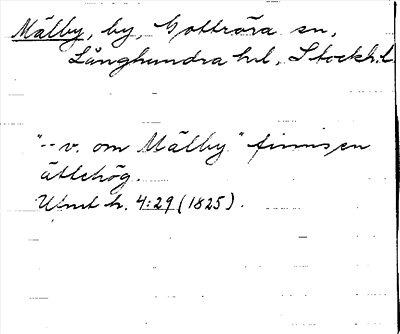 Mälby, by, Gottröra sn,
Långhundra hd, Stockh. l.
"-- v. om Mälby" finns en
ättehög.
h. 4:29 (1825).